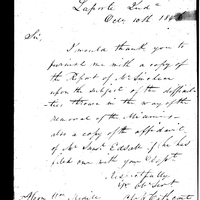 Laporte Inda
Octr 10th 184
Sir,
I would thank you to
furnish me with a copy of
the Report of Mr Sinclear
upon the subject of the difficul-
ties thrown in the way of the
removal of the Miamies
also a copy of the affidavit
of Mr Saml Edsall if he has
filed one with your Dept
Respectfully
Yr Ob Servt